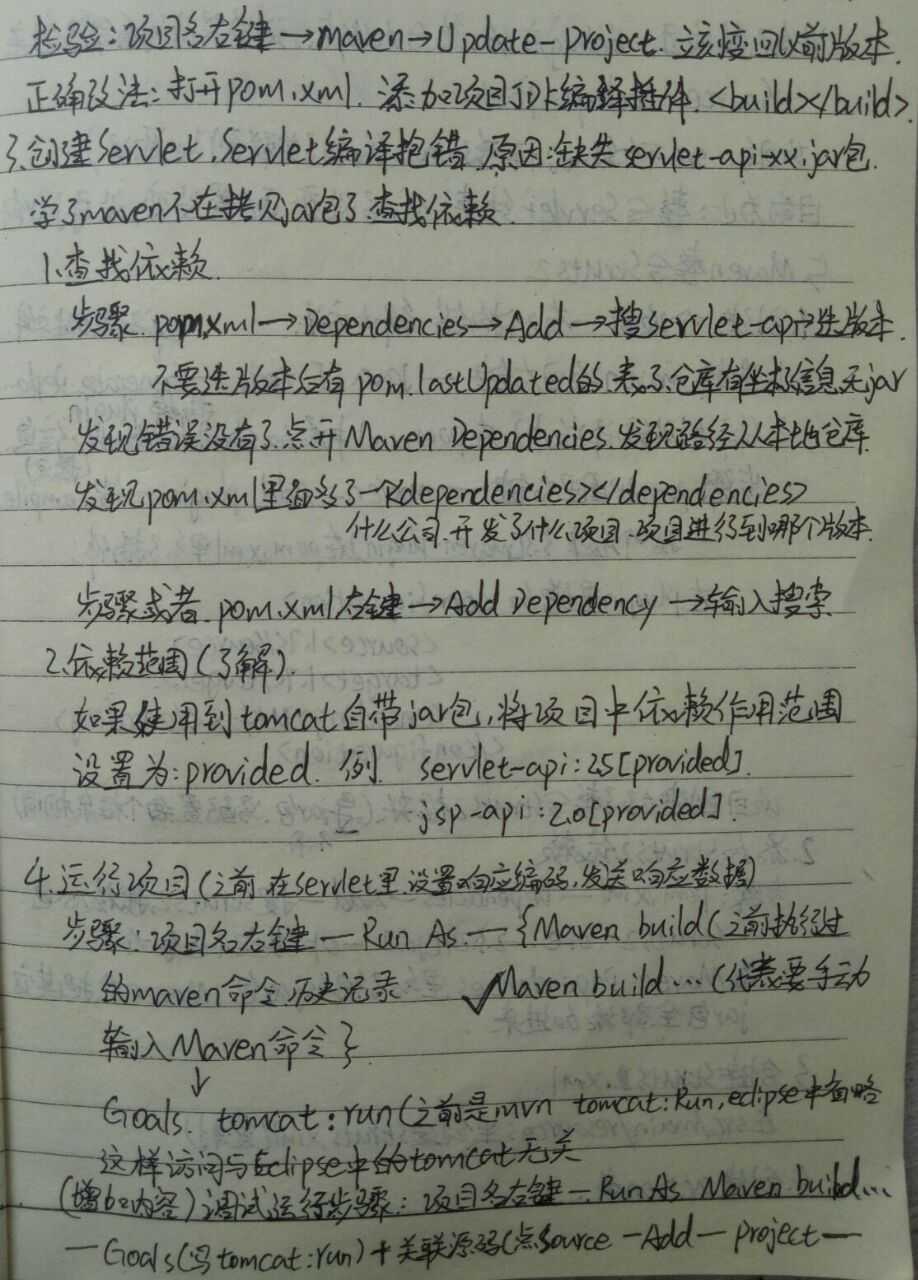 检验：项目名右键→maven→Update-project. 立刻变回以前版本.
正确改法：打开pom.xml. 添加项目JDK编译插件. <build></build>.
3.创建Servlet.Servlet编译抱错.原因：缺失servlet-api-xx.jar包.
学了maven不在拷贝jar包了.查找依赖.
1.查找依赖.
步骤.pom.xml→Dependencies→Add→搜servlet-api→选版本.
不要选版本后有pom.lastUpdated的.表示仓库有坐标信息无jar
发现错误没有了.点开Maven Dependencies.发现路径从本地仓库.
发现pom.xml里面多了一个<dependencies></dependencies>
什么公司.开发了什么项目.项目进行到哪个版本.
步骤或者.pom.xml右键→Add Dependency→输入搜索
2.依赖范围(了解).
如果使用到tomcat自带jar包,将项目中依赖作用范围
设置为:provided. 例. servlet-api:2.5[provided].
jsp-api:2.0[provided].
4.运行项目(之前在servlet里.设置响应编码,发送响应数据)
步骤:项目名右键—Run As.—{Maven build(之前执行过
的maven命令历史记录 ✓Maven build…(代表要手动
输入Maven命令}
↓
Goals. tomcat:run(之前是mvn tomcat:Run,eclipse中省略
这样访问与Eclipse中的tomcat无关
(增加内容)调试运行步骤:项目名右键—Run As Maven build…
—Goals(写tomcat:run)+关联源码(点Source—Add—project—